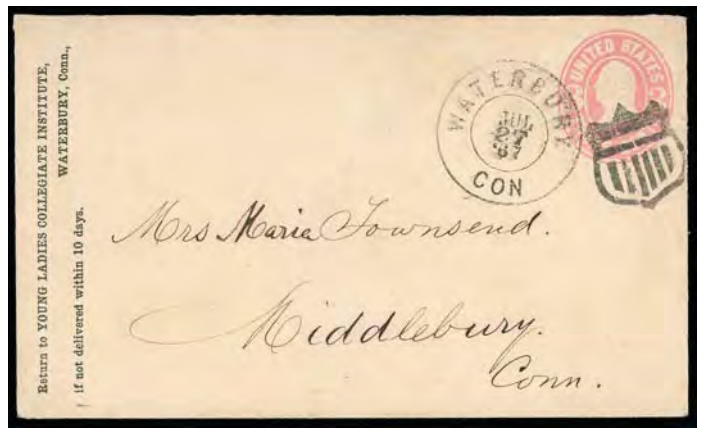 Return to YOUNG LADIES COLLEGIATE INSTITUTE,
WATERBURY, Conn.,
if not delivered within 10 days.
UNITED STATES
WATERBURY
JUL
27
'67
CON
Mrs Maria Townsend.
Middlebury.
Conn.